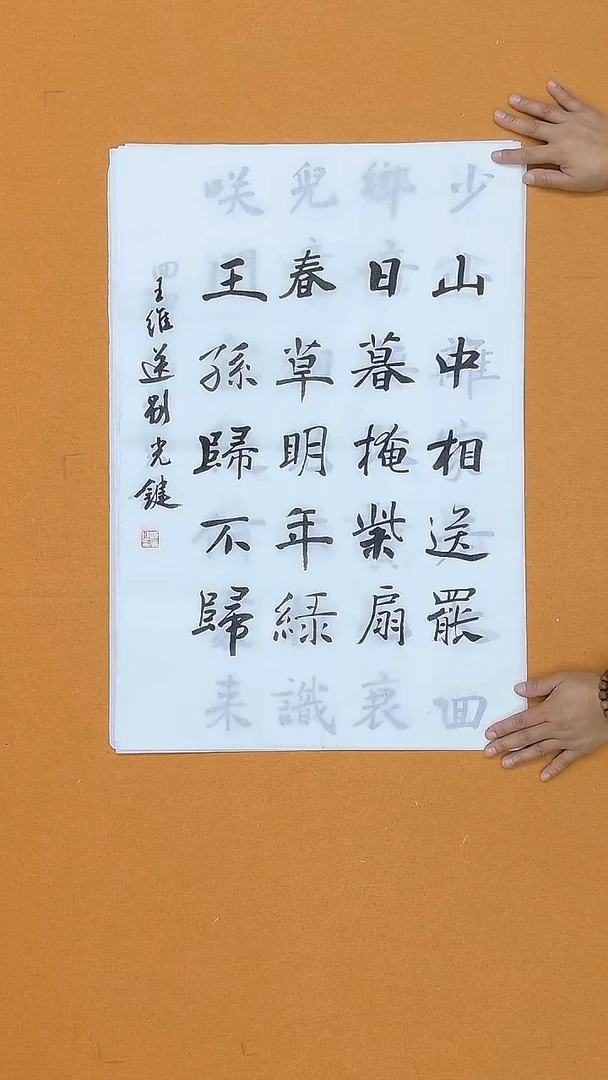 山中相送罷
日暮掩柴扇
春草明年緑
王孫歸不歸
王維送别光鍵